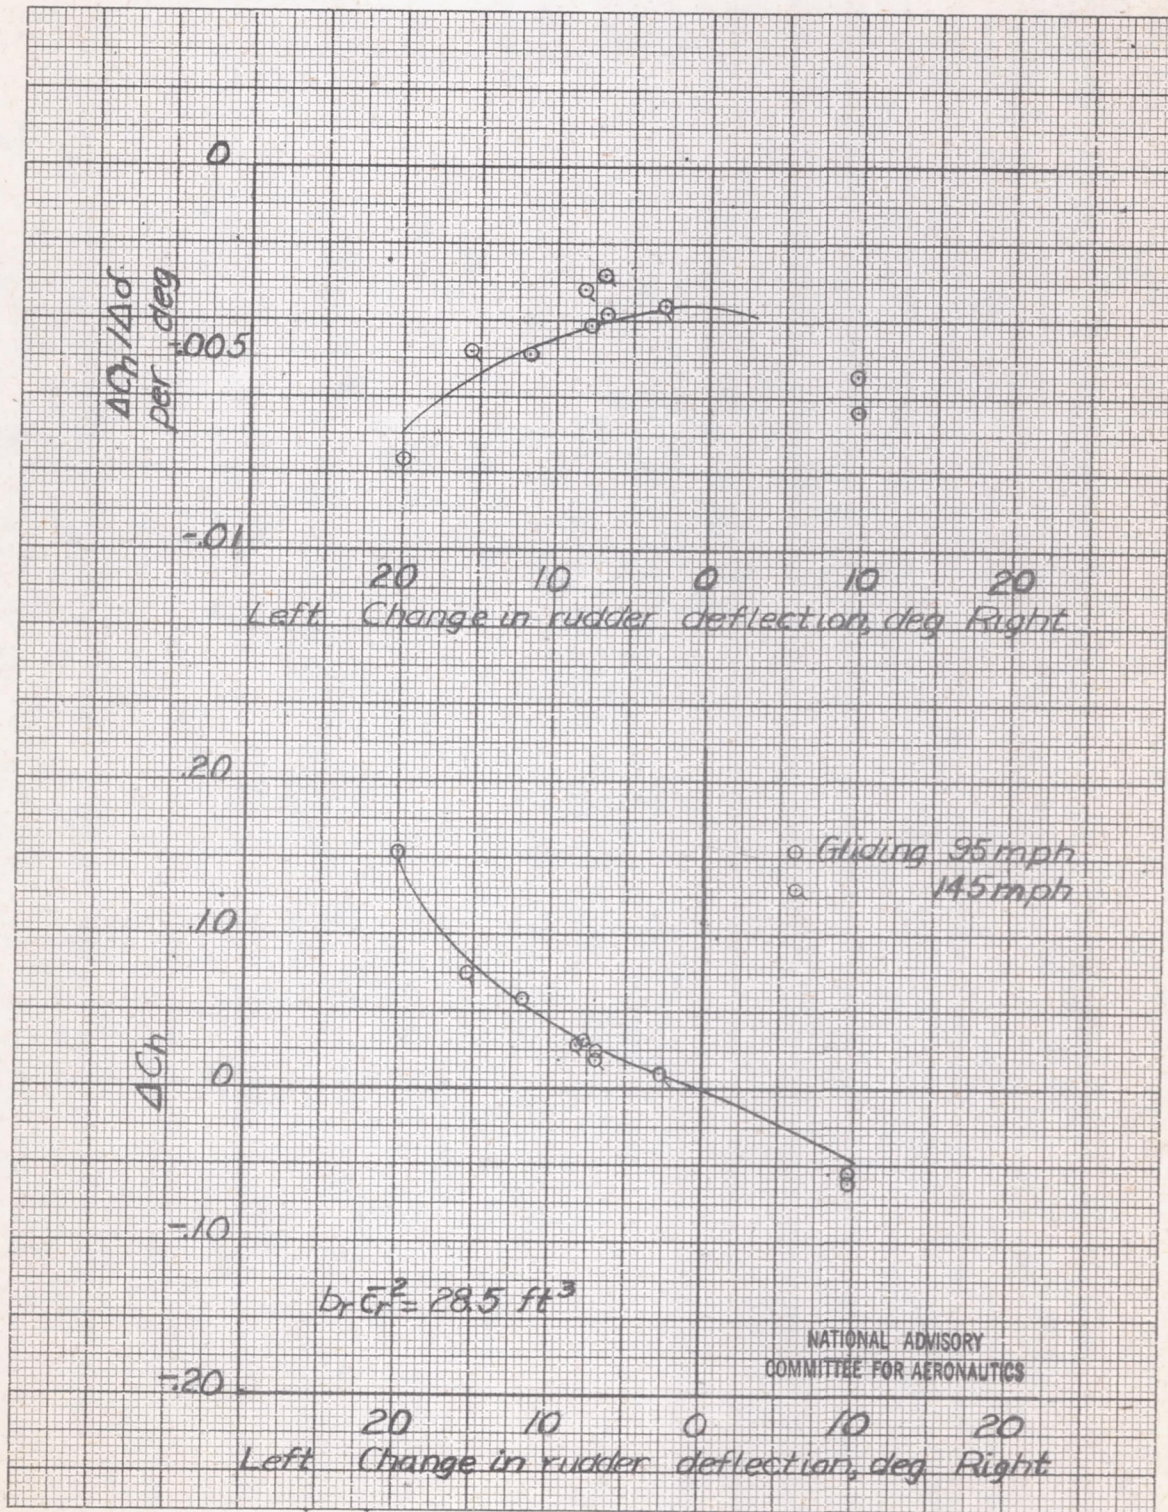 0
ΔCh/Δδ
per deg
-.005
-.01
20 10 0 10 20
Left Change in rudder deflection, deg Right
.20
Gliding 95 mph
145 mph
.10
ΔCh
0
-.10
br c̄r² = 28.5 ft³
NATIONAL ADVISORY
COMMITTEE FOR AERONAUTICS
-.20
20 10 0 10 20
Left Change in rudder deflection, deg Right